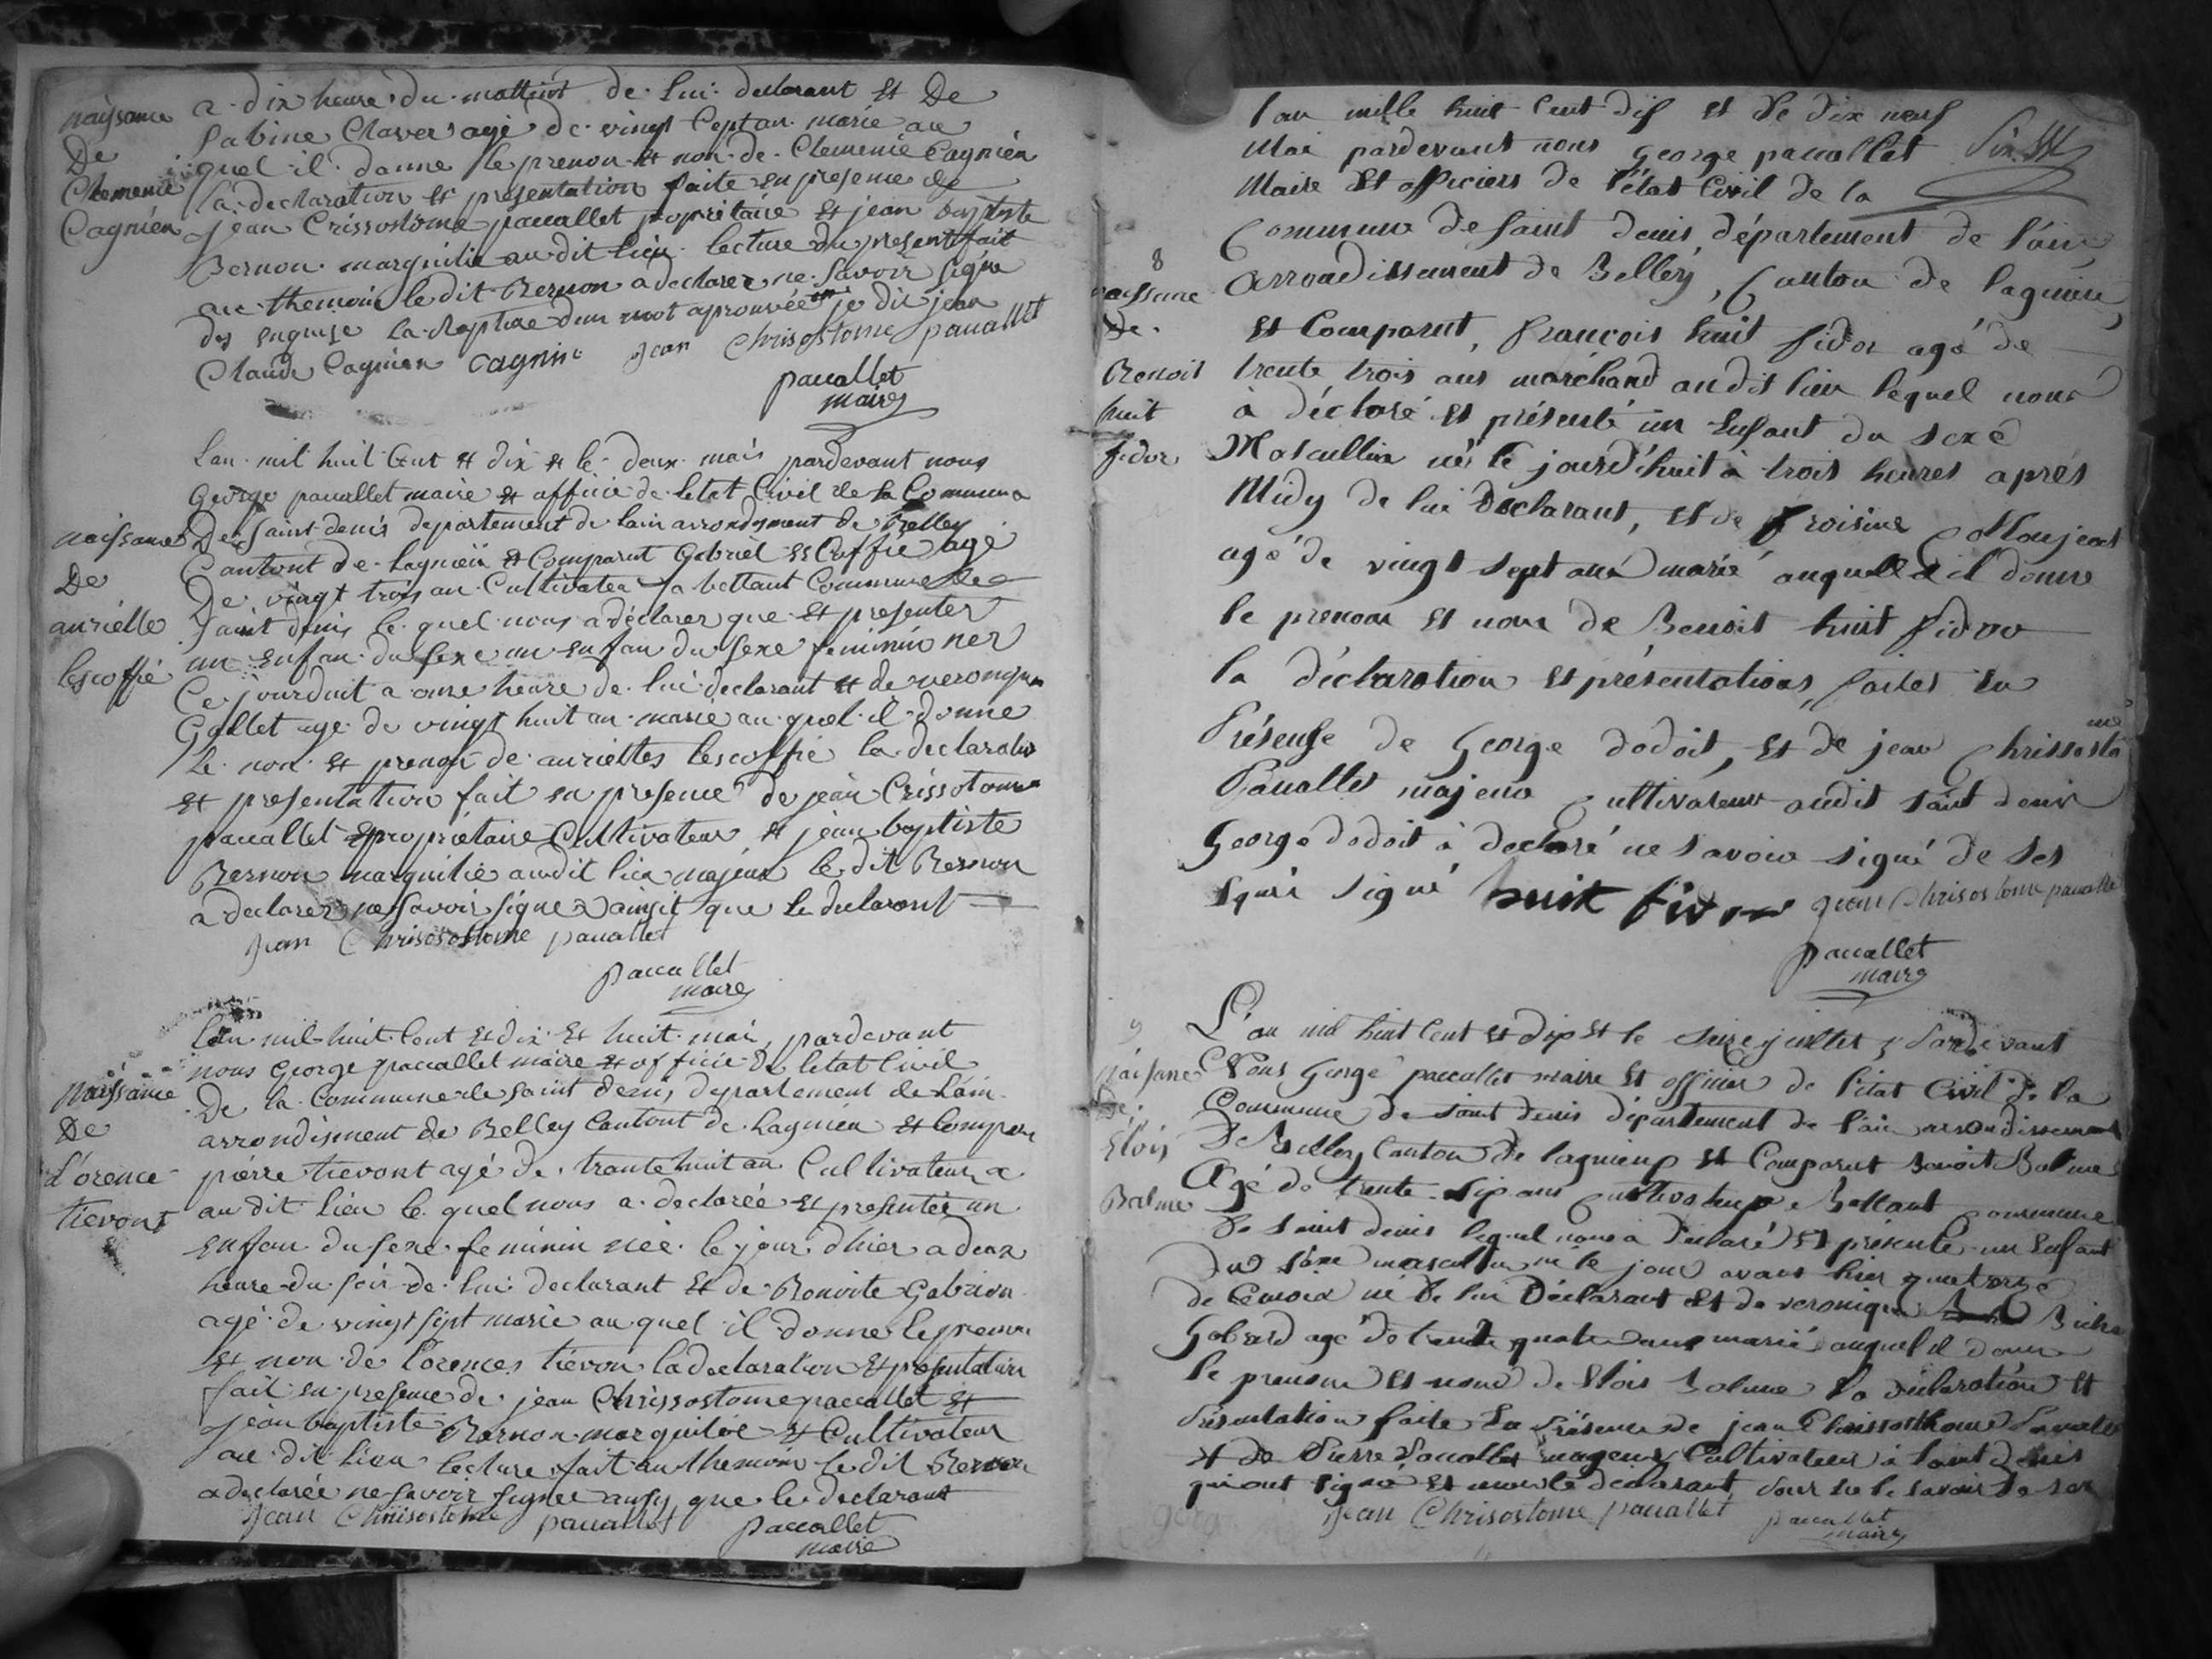 naissance
De
Clemence
Cagnien
a dix heure du mattint de lui declarant et De
Sabine Claver agé de vingt Cept an marié au
quel il donne le prenon et non de Clemencie Cagnien
la declaration et presentation faite en presence de
jean Crissostome paccallet propritaire et jean baptiste
Bernon marguilié audit lieu lecture du present fait
au themoin le dit Bernon a declarer ne Savoir signé
des enquise La Rapture dun mot aprouvée je dit jean
Claude Cagnien cagnin jean Chrisostome paccallet
paccallet
maire
naissance
De
auriette
lescoffié
Lan mil huit Cent et dix et le deux mais pardevant nous
George paccallet maire et officié de letat Civil de la Commune
De Saint denis departement de lain arrondisment de Belley
Cantont de Lagnieu et Comparut Gabriel esCoffié agé
De vingt trois an Cultivateu a bettant Commune de
Saint denis le quel nous a declarer que et presenter
un enfan du Sexe un enfan du Sexe feminin ner
Ce jourduit a onre heure de lui declarant et de veronique
Gallet agé de vingt huit an marié au quel il donne
le non et prenon de auriettes lescoffié la declaration
et presentation fait en presence de jean Crissotome
paccallet propriétaire Cultivateur et jean baptiste
Bernon marguilié audit lieu majeur le dit Bernon
a declarer ne Savoir signé ainsit que le declarant
jean Chrisosostome paccallet
paccallet
maire
Naissance
De
L'orence
tievont
Lan mil huit Cent et dix et huit mai pardevant
nous George paccallet maire et officié de letat Civil
De la Commune de Saint denis departement de Lain
arrondisment de Belley Cantont de Lagnieu et Compau
pierre tievont agé de trante huit an Cultivateur a
au dit lieu le quel nous a declarée et presentée un
enfan du Sexe feminin née le jour dhier a deux
heure du soir de lui declarant et de Benoite Gabrion
agé de vingt sept marié au quel il donne le prenon
et non de Lorences tievon la declaration et presentation
fait en presence de jean Chrissostome paccallet et
jean baptiste Bernon marguilié et Cultivateur
au dit lieu lecture fait au themoin le dit Bernon
a declarée ne Savoir signee ausy que le declarant
jean Chrisostome paccallet paccallet
maire
8
naissance
De
Benoit
huit
fidor
l'an mille huit Cent dix et le dix neuf
Mai pardevant nous George paccallet
Maire et officiers de l'état Civil de la
Commune de Saint denis, département de l'ain,
Arrondissement de Belley, Canton de lagnieu,
et Comparut, françois huit fidor agé de
trente trois ans marchand audit lieu lequel nous
à déclaré et présenté un Enfant du sexe
Mascullin né le jourd'huit à trois heures après
Midy de lui Declarant, et de froisine
agé de vingt sept ans marié auquelle il donne
le prenom et nom de Benoit huit fidor
la déclaration et présentations, faites en
Présense de George dodoit, et de jean Chrissosto me
Paccallet majeur Cultivateur audit saint denis
George dodoit à declaré ne savoir signé de ses
signé huit fidor jean Chrisostome paccallet
paccallet
maire
9
naisance
De
Elois
Balme
L'an mil huit Cent et dix et le seize juillet Pardevant
Nous George paccallet maire et officier de l'état Civil de la
Commune de saint denis département de l'ain arrondissement
De Belley Canton de lagnieu et Comparut Benoit Balme
Agé de trente six ans Cultivateur Bettant Commune
de saint denis lequel nous à Déclaré et présenté un Enfant
du sexe masculin né le jour avant hier quatorze
de Cemois né De lui Déclarant et de veronique
Gobrard agé de trente quatre ans marié auquel il donne
le prenom et nom de Elois Balme la déclaration et
Présentation faite en Présence de jean Chrissosthome Paccallet
et de Pierre Paccallet mageur Cultivateur à saint denis
qui ont signé et non le declarant pour ne le savoir de
jean Chrisostome paccallet paccallet
maire